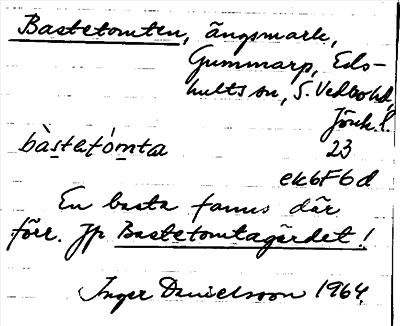 Bastetomten, ängsmark,
Gummarp, Eds-
hults sn, S. Vedbo hd,
Jönk. l.
bàsteto̍mta
23
ek6F6d
En basta fanns där
förr. Jfr Bastetomtagärdet!
Inger Danielsson 1964